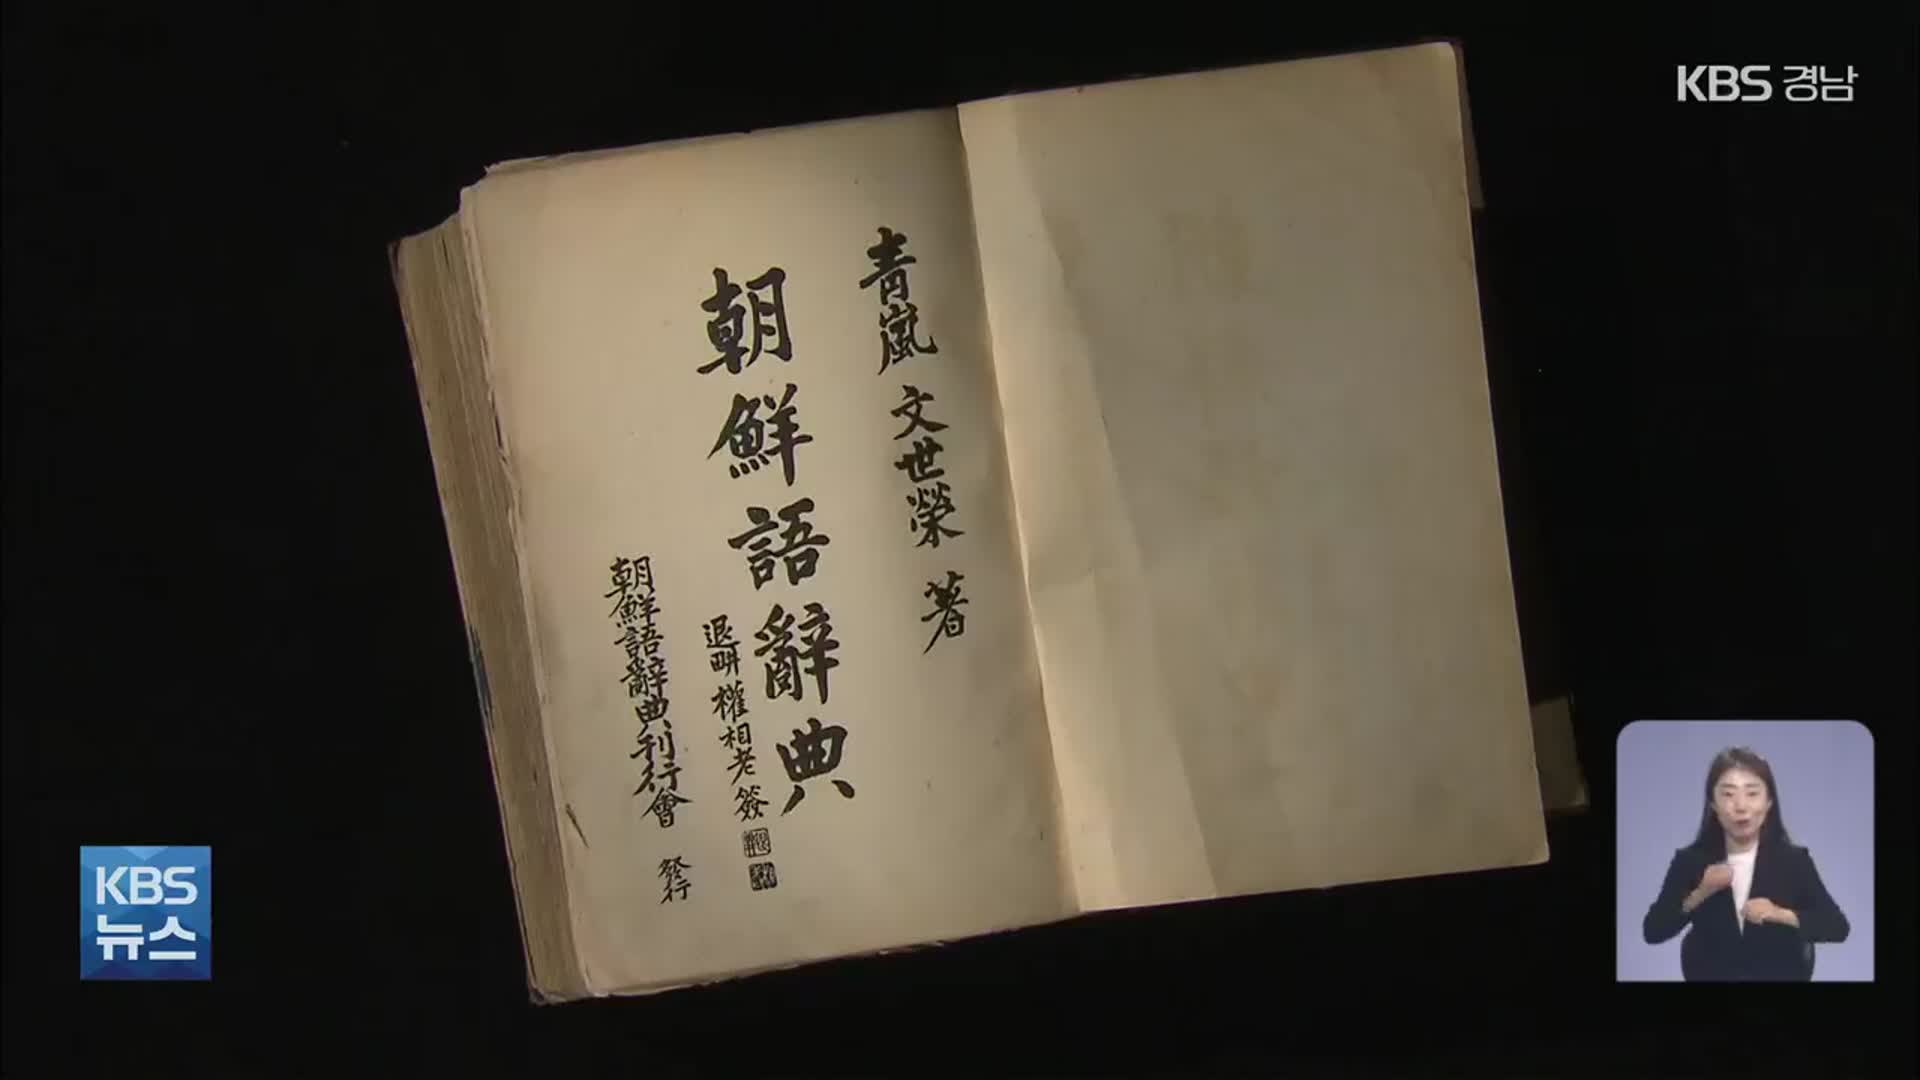 KBS 경남
青嵐 文世榮 著
朝鮮語辭典
退畊 權相老簽
朝鮮語辭典刊行會 發行
KBS
뉴스